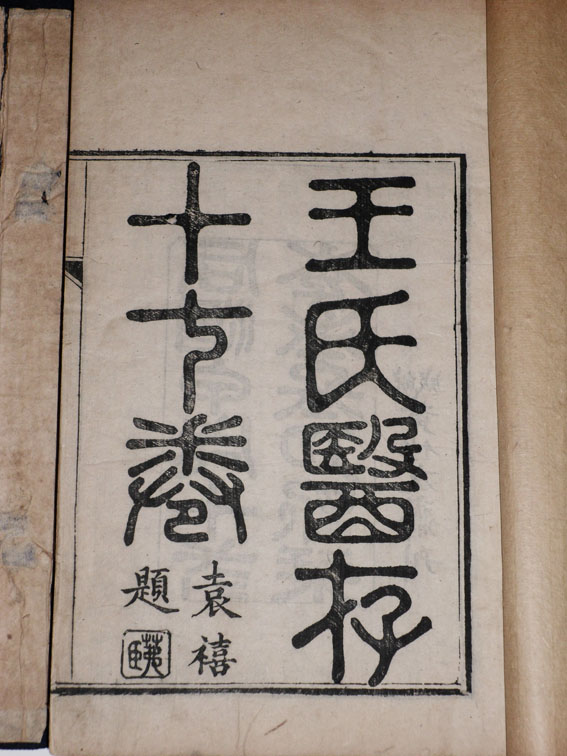 王氏醫存
十七卷
袁禧
題